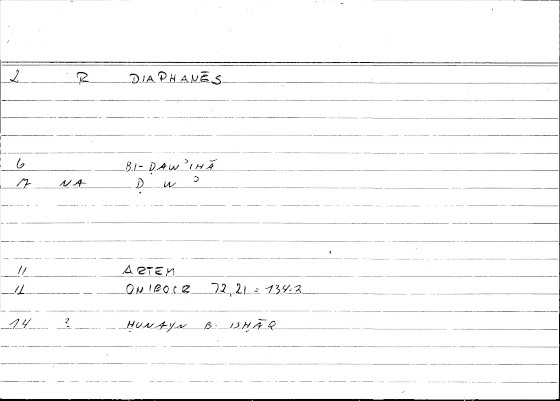 2 R DIAPHANĒS
6 BI-ḌAWʾIHĀ
17 NA Ḍ W ʾ
11 ARTEM
12 ONIROCR 72,21 = 134.2
14 ? ḤUNAYN B. ISḤĀQ